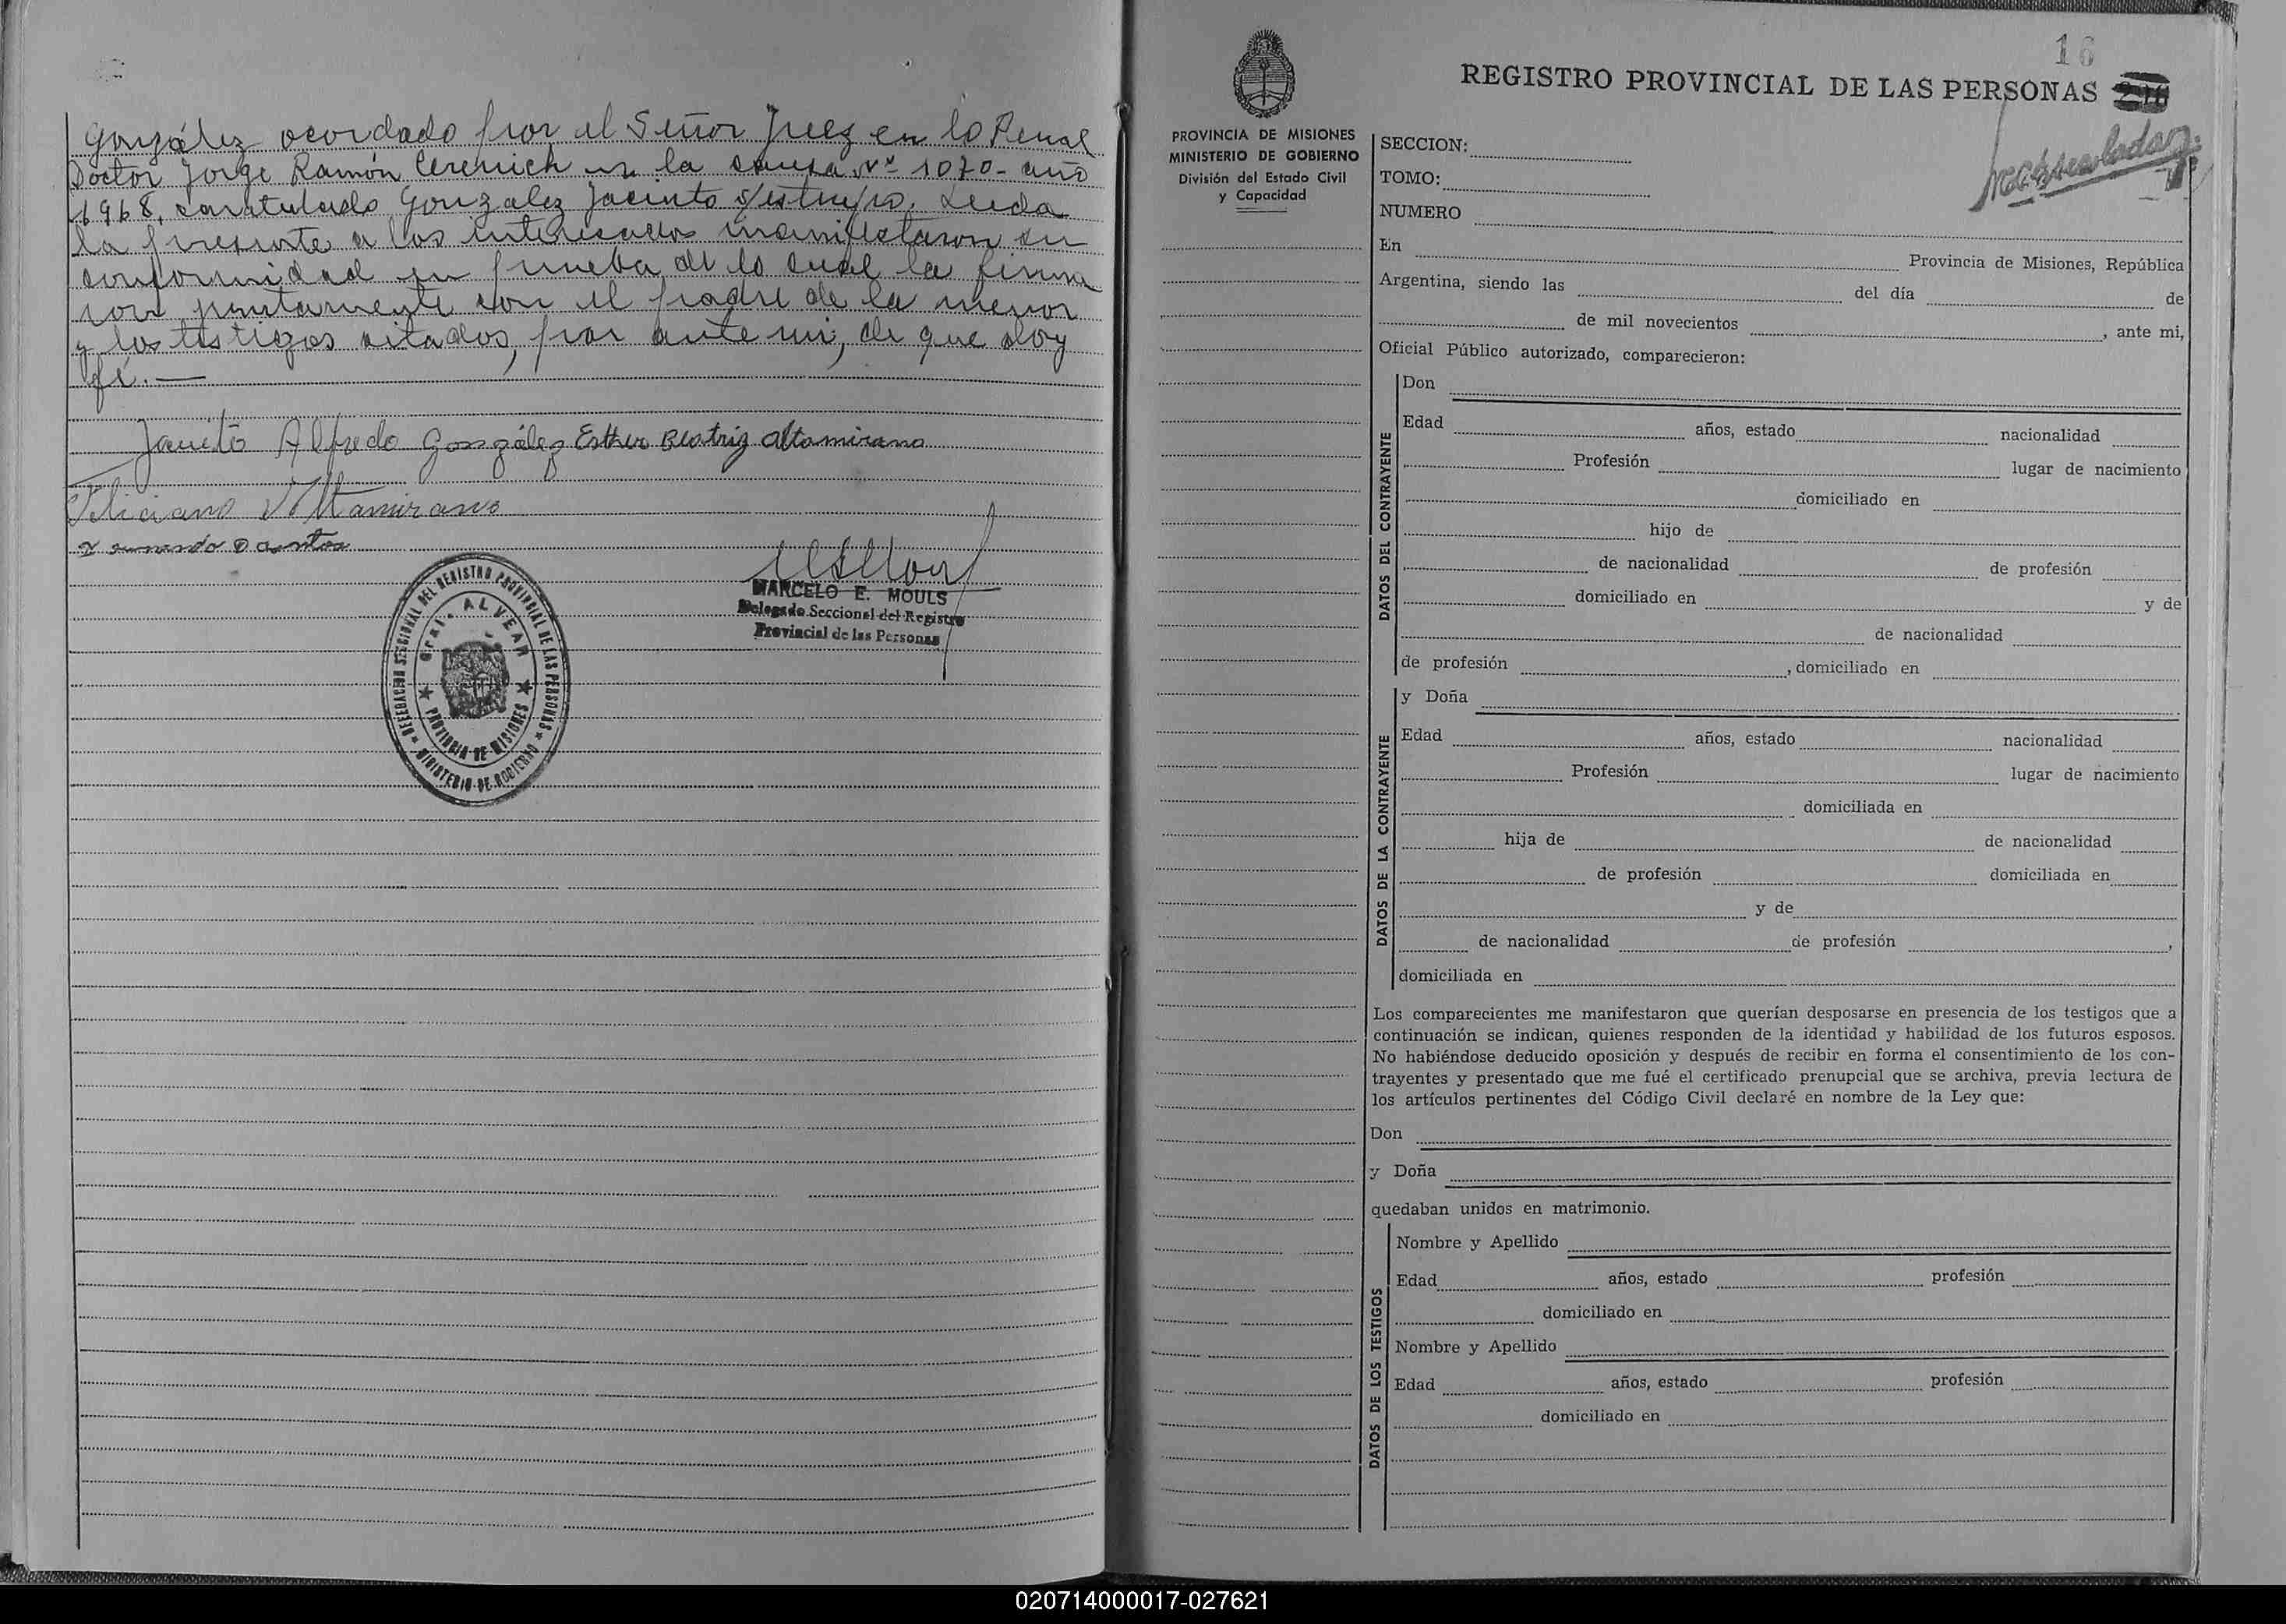 González acordado por el Señor Juez en lo Penal
Doctor Jorge Ramón en la causa Nº 1070- año
1968, caratulado González Jacinto s/estupro. Leida
la presente a los interesados manifestaron su
conformidad en prueba de lo cual la firma
ron juntamente con el padre de la menor
y los testigos citados, por ante mi, de que doy
fé.—
Jacinto Alfredo González Esther Beatriz Altamirano
Feliciano Altamirano
MARCELO E. MOULS
Delegado Seccional del Registro
Provincial de las Personas
DELEGACION SECCIONAL DEL REGISTRO PROVINCIAL DE LAS PERSONAS
MINISTERIO DE GOBIERNO
Gral. ALVEAR
PROVINCIA DE MISIONES
16
REGISTRO PROVINCIAL DE LAS PERSONAS
PROVINCIA DE MISIONES
MINISTERIO DE GOBIERNO
División del Estado Civil
y Capacidad
SECCION:
TOMO:
NUMERO
En Provincia de Misiones, República
Argentina, siendo las del día de
de mil novecientos , ante mi,
Oficial Público autorizado, comparecieron:
DATOS DEL CONTRAYENTE
Don
Edad años, estado nacionalidad
Profesión lugar de nacimiento
domiciliado en
hijo de
de nacionalidad de profesión
domiciliado en y de
de nacionalidad
de profesión , domiciliado en
DATOS DE LA CONTRAYENTE
y Doña
Edad años, estado nacionalidad
Profesión lugar de nacimiento
domiciliada en
hija de de nacionalidad
de profesión domiciliada en
y de
de nacionalidad de profesión ,
domiciliada en
Los comparecientes me manifestaron que querían desposarse en presencia de los testigos que a
continuación se indican, quienes responden de la identidad y habilidad de los futuros esposos.
No habiéndose deducido oposición y después de recibir en forma el consentimiento de los con-
trayentes y presentado que me fué el certificado prenupcial que se archiva, previa lectura de
los artículos pertinentes del Código Civil declaré en nombre de la Ley que:
Don
y Doña
quedaban unidos en matrimonio.
DATOS DE LOS TESTIGOS
Nombre y Apellido
Edad años, estado profesión
domiciliado en
Nombre y Apellido
Edad años, estado profesión
domiciliado en
020714000017-027621